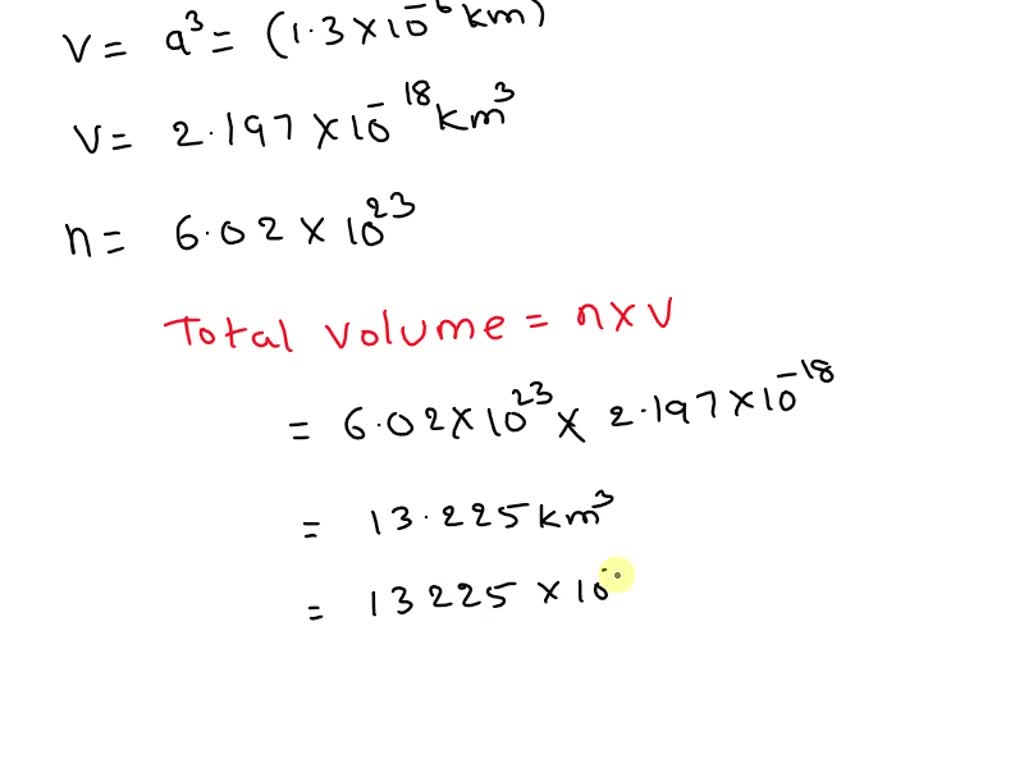 V = a³ = (1.3 × 10⁻⁶ km)
V = 2.197 × 10⁻¹⁸ km³
n = 6.02 × 10²³
Total volume = n × v
= 6.02 × 10²³ × 2.197 × 10⁻¹⁸
= 13.225 km³
= 13225 × 10⁻